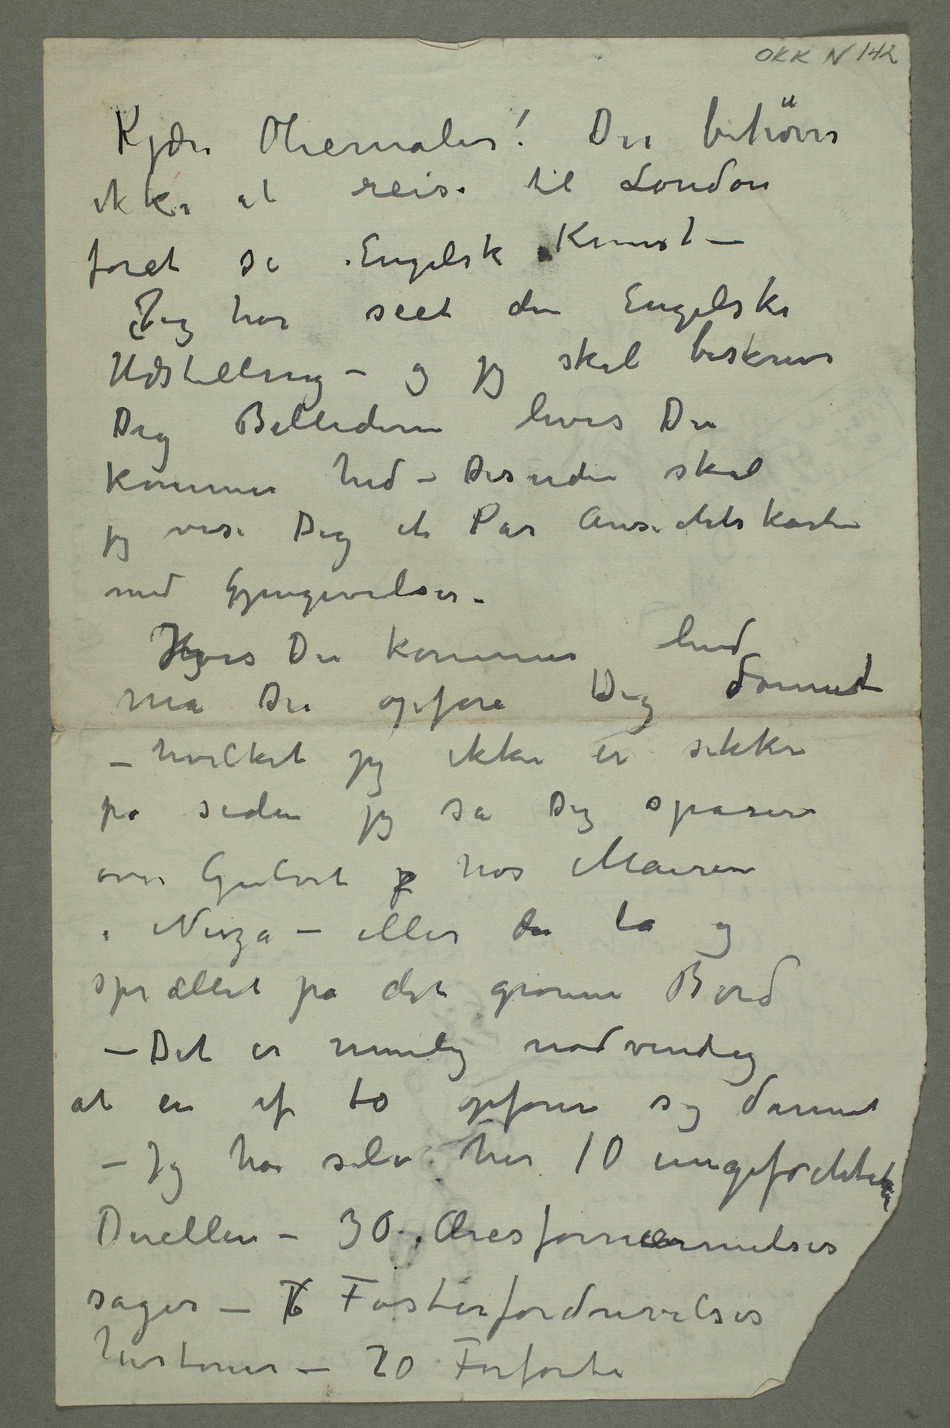 OKK N 142
Kjære Oliemaler! Du behøver
ikke at reise til London
forat se Engelsk Kunst –
Jeg har seet den Engelske
Udstilling – og jeg skal beskrive
Dig Billederne hvis Du
kommer hid – Desuden skal
jeg vise Dig et Par Ansichtskarten
med Gjengivelser –
Hvis Du kommer hid
må Du opføre Dig dannet
– hvilket jeg ikke er sikker
på siden jeg så Dig spasere
over Gulvet hos Maurer
i Nizza – eller du lå og
sprællet på det grønne Bord
– Det er nemlig nødvendig
at en af to opfører sig dannet
– Jeg har selv her 10 ungefochtete
Dueller – 30 Æresfornærmelses
sager – 6 Fosterfordrivelses
historier – 20 Forførte